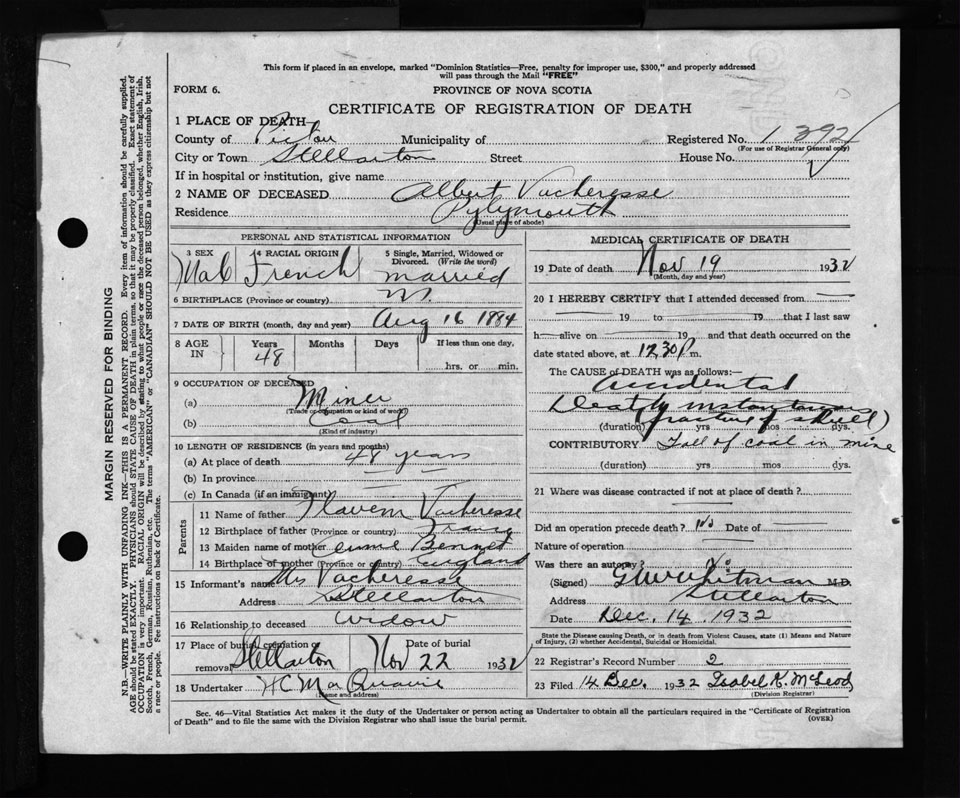 This form if placed in an envelope, marked "Dominion Statistics—Free, penalty for improper use, $300," and properly addressed
will pass through the Mail "FREE"
FORM 6.
PROVINCE OF NOVA SCOTIA
CERTIFICATE OF REGISTRATION OF DEATH
1 PLACE OF DEATH—
County of Pictou Municipality of Registered No. 1392
(For use of Registrar General only)
City or Town Stellarton Street House No.
If in hospital or institution, give name
2 NAME OF DECEASED Albert Vacheresse
Residence
(Usual place of abode)
PERSONAL AND STATISTICAL INFORMATION
3 SEX 4 RACIAL ORIGIN 5 Single, Married, Widowed or Divorced. (Write the word)
Male French married
6 BIRTHPLACE (Province or country)
7 DATE OF BIRTH (month, day and year) Aug 16 1884
8 AGE IN Years Months Days If less than one day,
48 hrs. or min.
9 OCCUPATION OF DECEASED
(a) Miner
(Trade or occupation or kind of work)
(b) Coal
(Kind of industry)
10 LENGTH OF RESIDENCE (in years and months)
(a) At place of death 48 years
(b) In province
(c) In Canada (if an immigrant)
Parents
11 Name of father Vacheresse
12 Birthplace of father (Province or country) France
13 Maiden name of mother Bennet
14 Birthplace of mother (Province or country) England
15 Informant's name Mrs Vacheresse
Address Stellarton
16 Relationship to deceased Widow
17 Place of burial, cremation or removal Stellarton Date of burial Nov 22 1932
18 Undertaker
(Name and address)
MEDICAL CERTIFICATE OF DEATH
19 Date of death Nov 19 1932
(Month, day and year)
20 I HEREBY CERTIFY that I attended deceased from
19 to 19 that I last saw
h alive on 19 and that death occurred on the
date stated above, at 12.30 P.m.
The CAUSE of DEATH was as follows:—
Accidental
Death
(fracture of skull)
(duration) yrs mos dys.
CONTRIBUTORY Fall of coal in mine
(duration) yrs mos dys.
21 Where was disease contracted if not at place of death?
Did an operation precede death? No Date of
Nature of operation
Was there an autopsy? No
(Signed) Whitman M.D.
Address Stellarton
Date Dec. 14. 1932
State the Disease causing Death, or in death from Violent Causes, state (1) Means and Nature
of Injury, (2) whether Accidental, Suicidal or Homicidal.
22 Registrar's Record Number 2
23 Filed 14 Dec. 1932 Isabel K. McLeod
(Division Registrar)
Sec. 46—Vital Statistics Act makes it the duty of the Undertaker or person acting as Undertaker to obtain all the particulars required in the "Certificate of Registration
of Death" and to file the same with the Division Registrar who shall issue the burial permit.
(OVER)
MARGIN RESERVED FOR BINDING
N.B.—WRITE PLAINLY WITH UNFADING INK—THIS IS A PERMANENT RECORD. Every item of information should be carefully supplied.
AGE should be stated EXACTLY. PHYSICIANS should STATE CAUSE OF DEATH in plain terms, so that it may be properly classified. Exact statement of
OCCUPATION is very important. RACIAL ORIGIN will be described by stating to what people or race the deceased person belonged, whether English, Irish,
Scotch, French, German, Russian, Ruthenian, etc. The terms "AMERICAN" or "CANADIAN" SHOULD NOT BE USED as they express citizenship but not
a race or people. See instructions on back of Certificate.